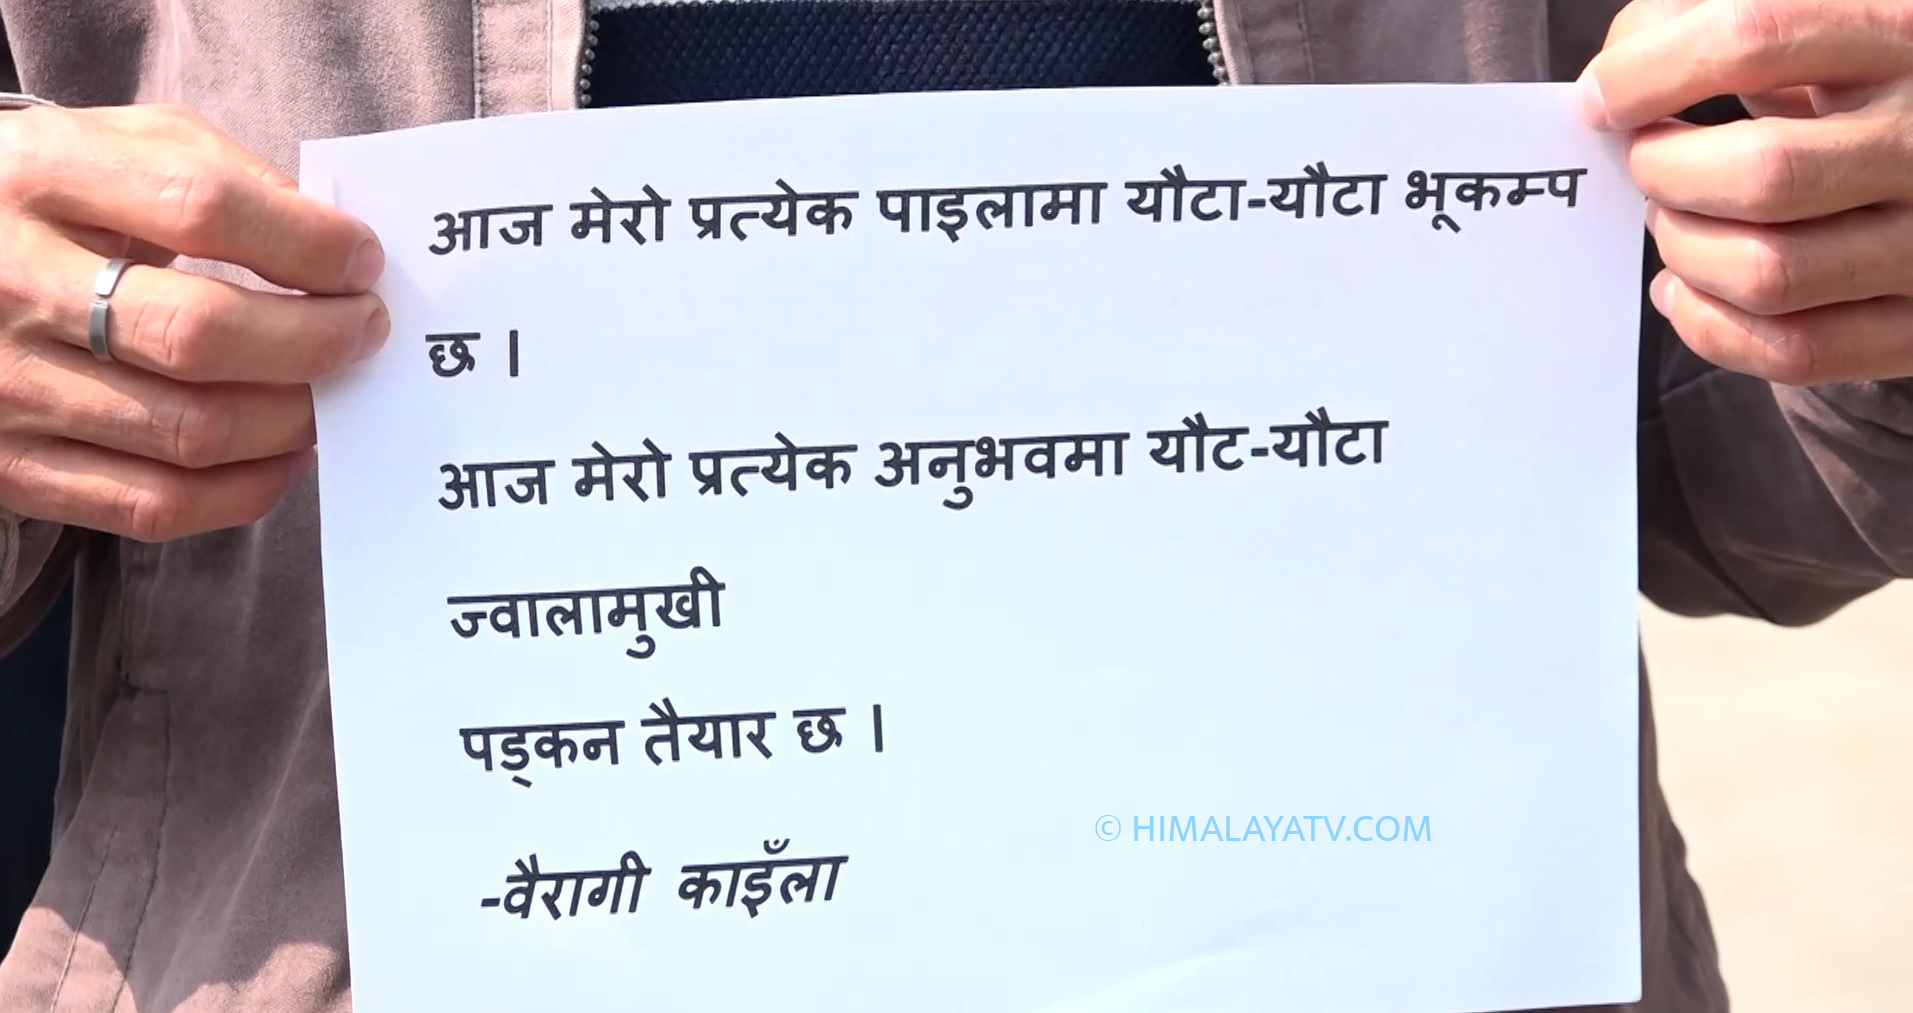 आज मेरो प्रत्येक पाइलामा यौटा-यौटा भूकम्प
छ ।
आज मेरो प्रत्येक अनुभवमा यौट-यौटा
ज्वालामुखी
पड्कन तैयार छ ।
© HIMALAYATV.COM
-वैरागी काइँला